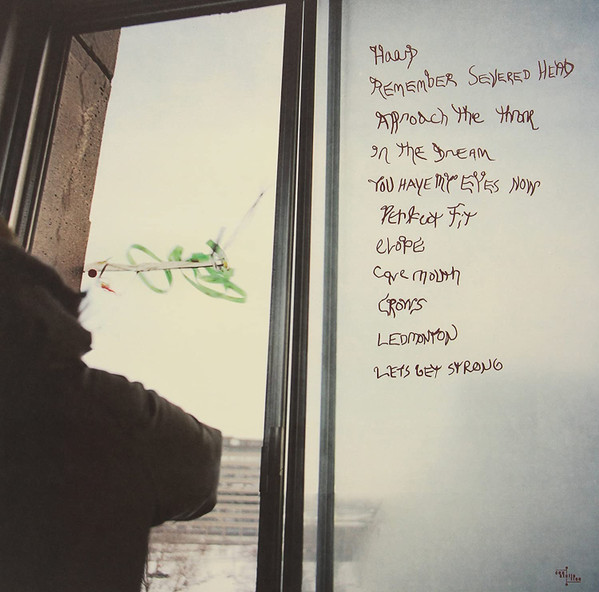 Haarp
REMEMBER SEVERED HEAD
APProach the throne
in the DReam
YOU HAVE MY EYES NOW
Perfect Fit
elope
cave mouth
CROWS
LEDMONTON
LETS GET STRONG